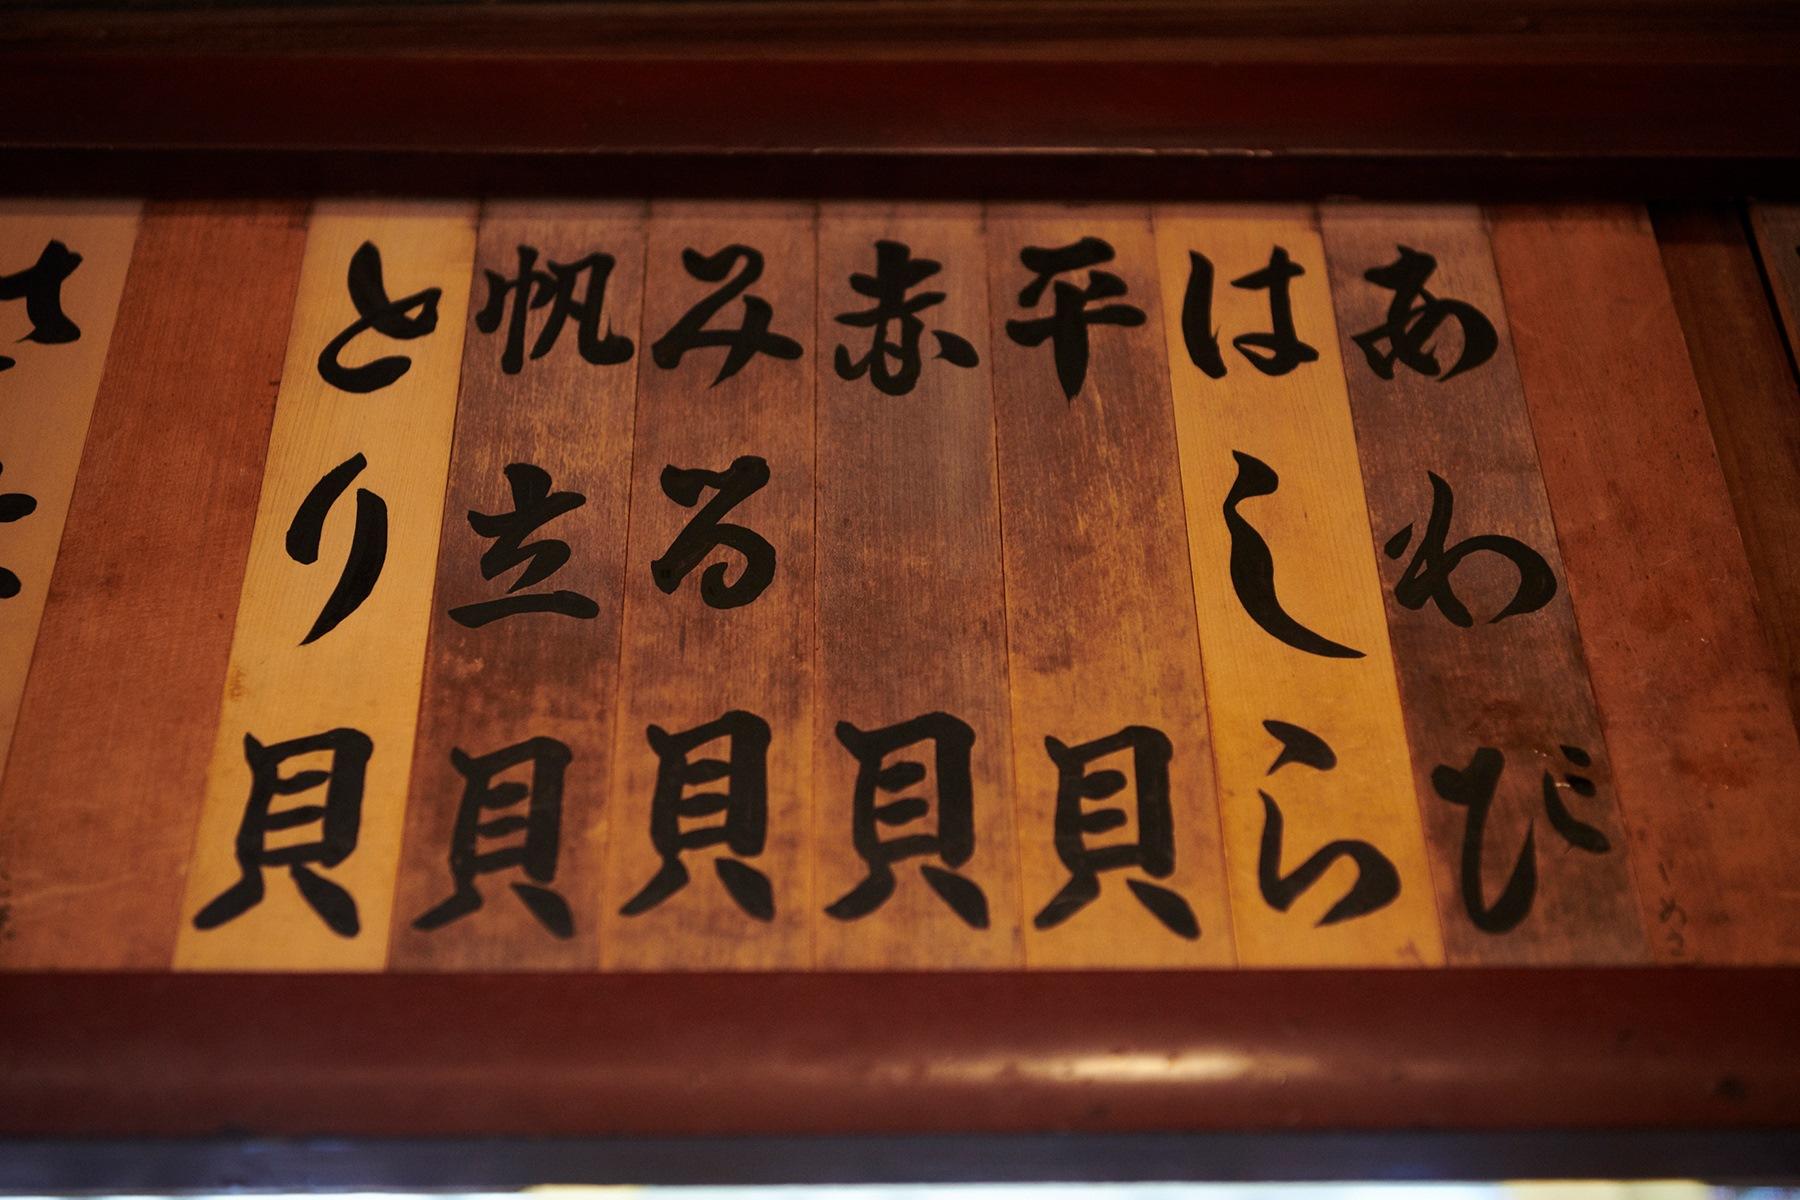 あわび
はしら
平貝
赤貝
みる貝
帆立貝
とり貝